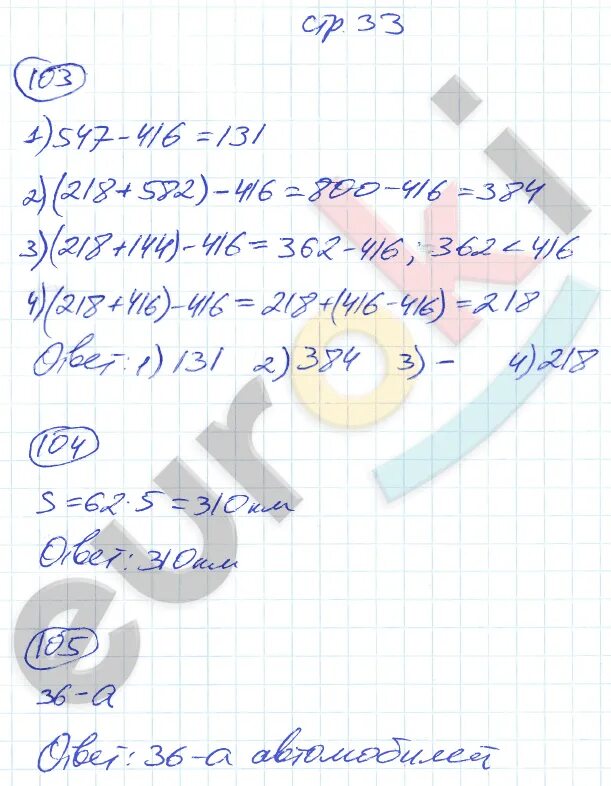 стр. 33
103
1) 547-416=131
2) (218+582)-416=800-416=384
3) (218+144)-416=362-416; 362<416
4) (218+416)-416=218+(416-416)=218
Ответ: 1) 131 2) 384 3) - 4) 218
104
S=62·5=310км
Ответ: 310км
105
36-a
Ответ: 36-a автомобилей
euroki